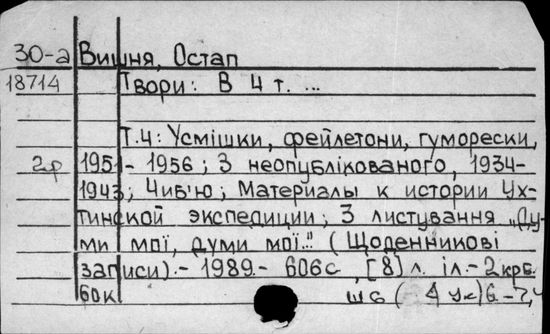 30-а Вишня, Остап
18714 Твори: В 4 т. ...
Т.4: Усмішки, фейлетони, гуморески,
2р 1951-1956; З неопублікованого, 1934-
1943; Чиб'ю; Материалы к истории Ух-
тинской экспедиции; З листування „Ду-
ми мої, думи мої..." (Щоденникові
записи).- 1989.- 606с, [8] л. іл.- 2крб.
60к.